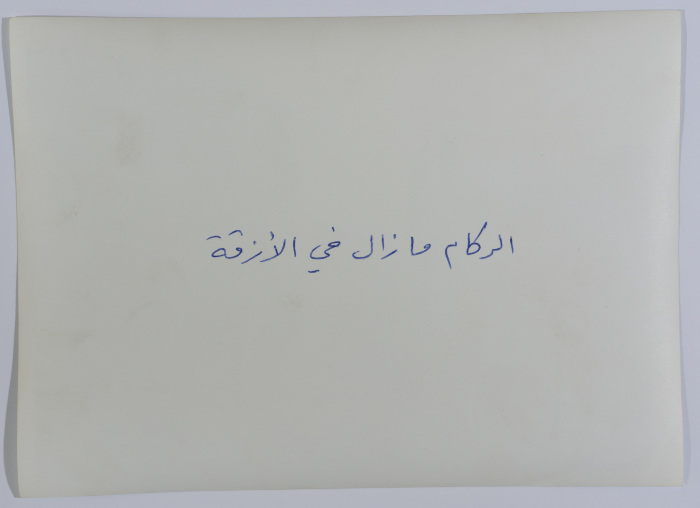 الركام مازال في الأزقة